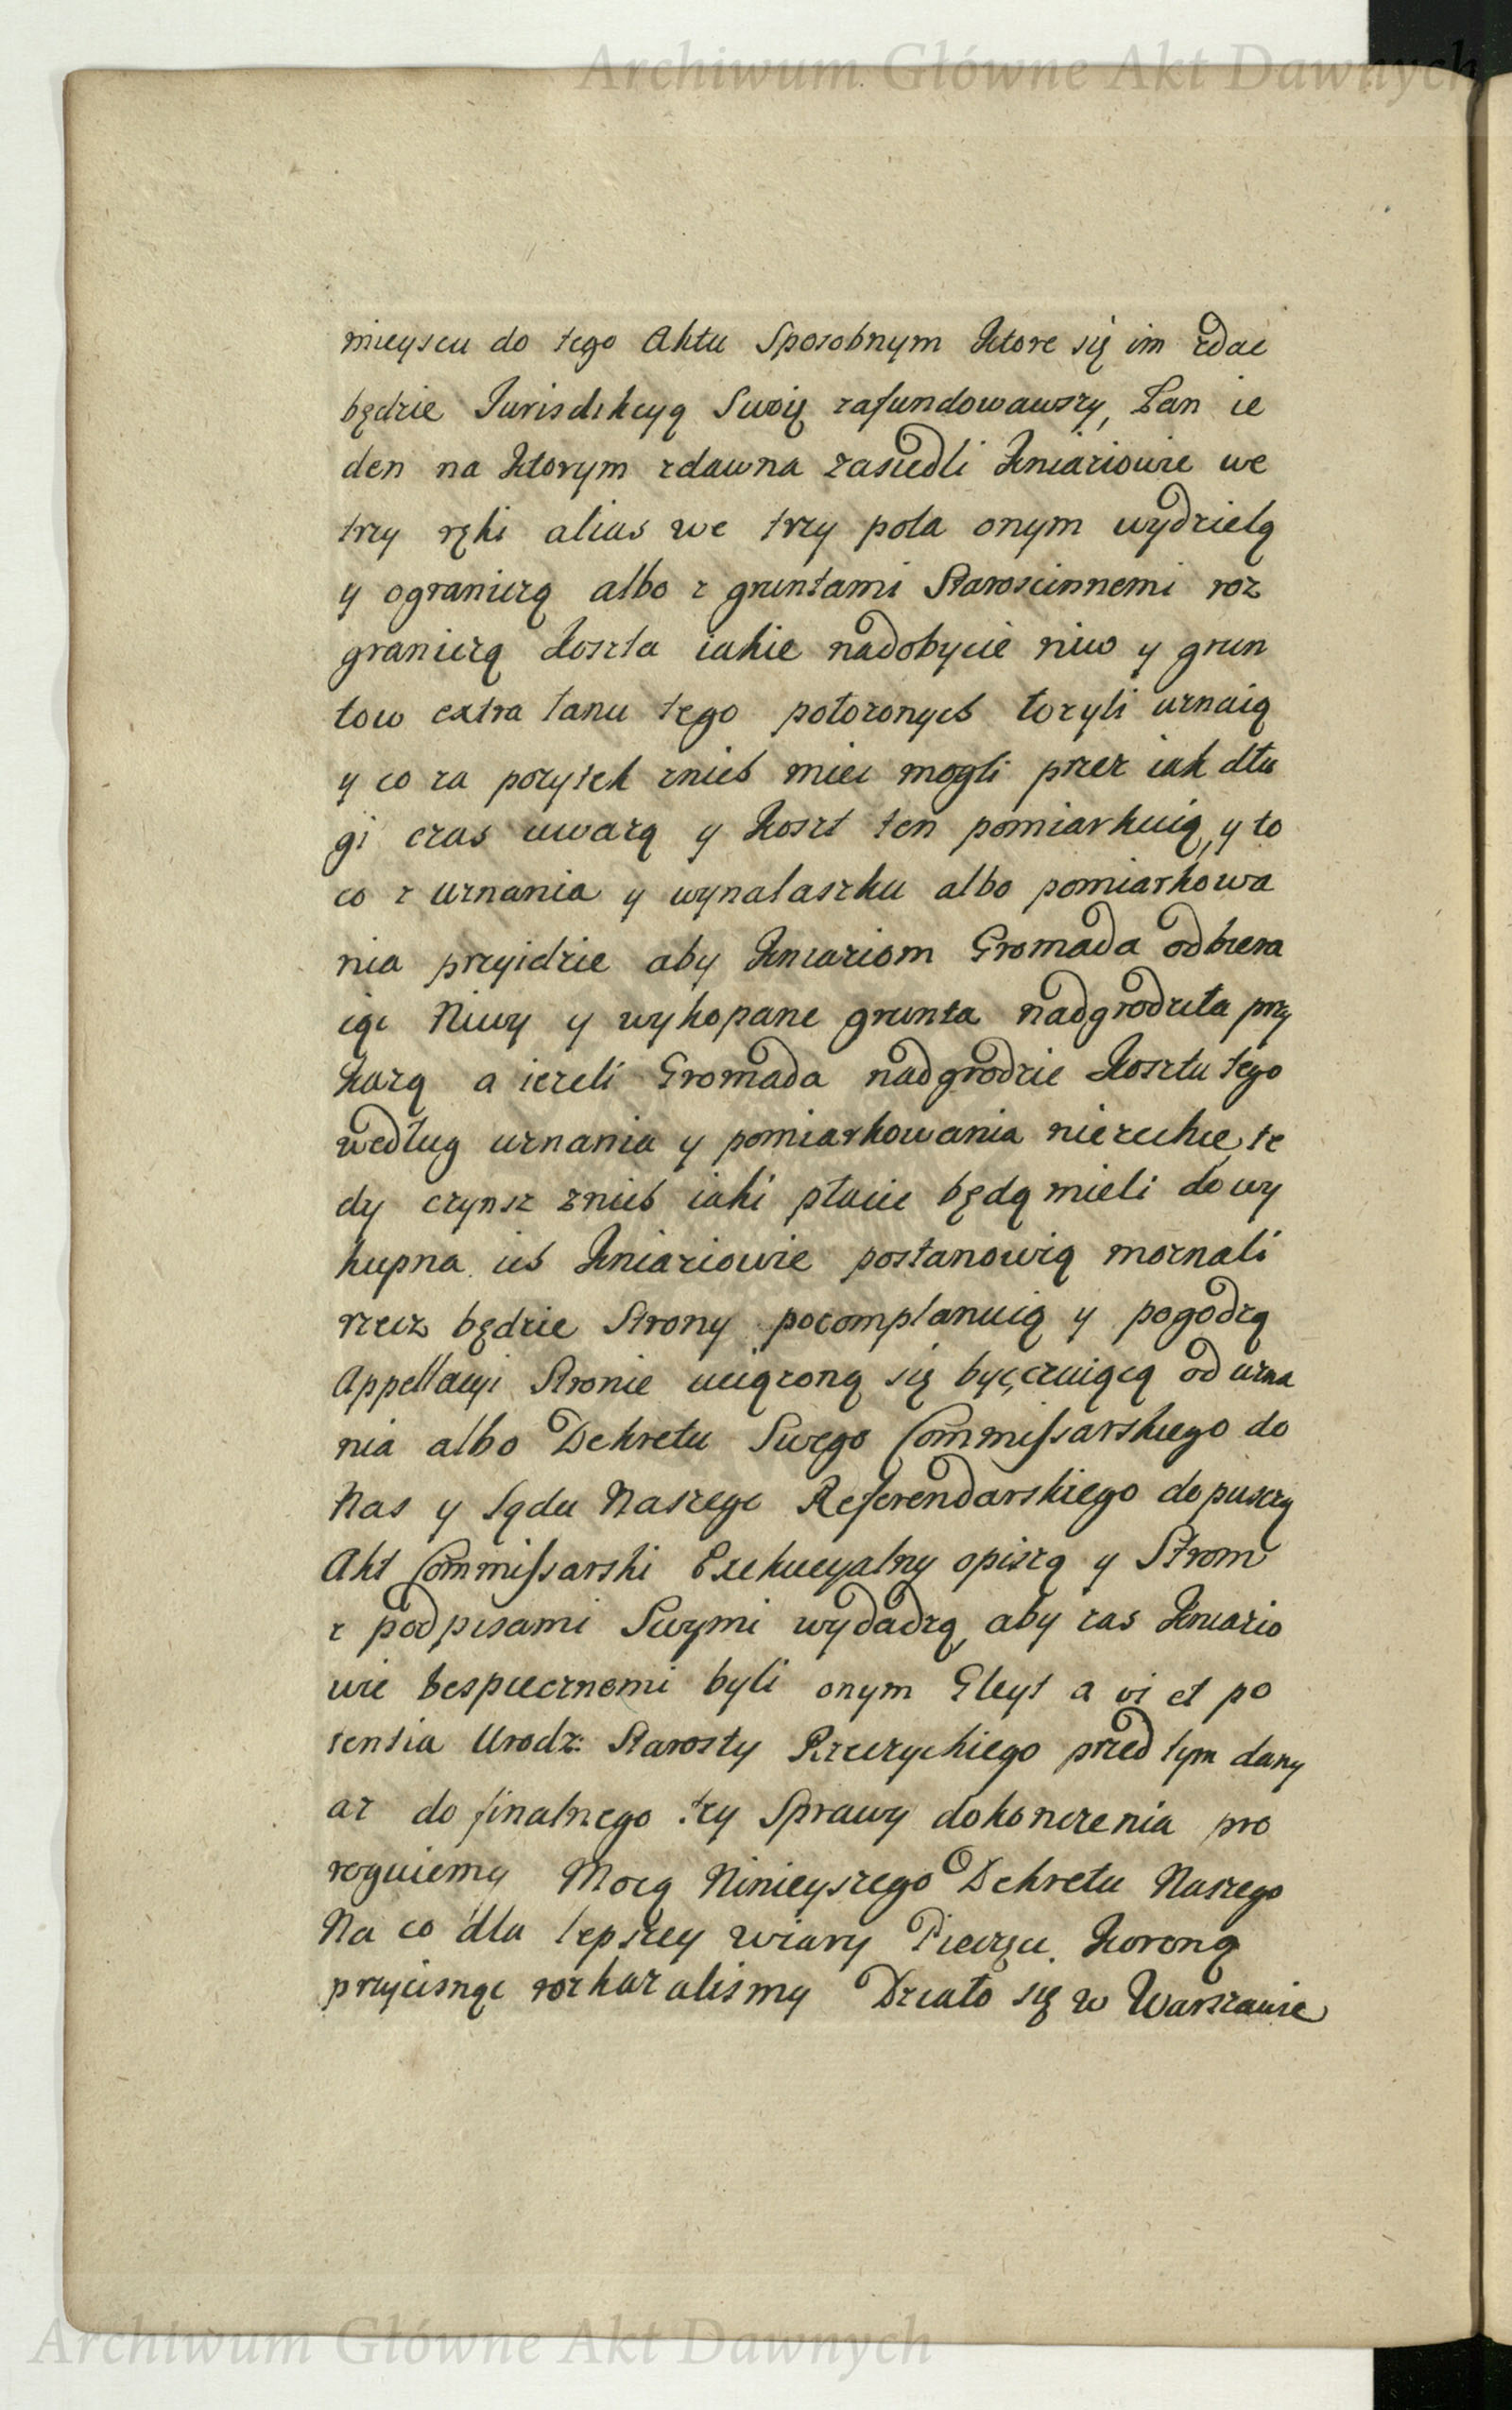 Archiwum Główne Akt Dawnych
mieyscu do tego Aktu Sposobnym ktore się im zdac
będzie Jurisdikcyą Swoię zafundowawszy, Łan ie
den na ktorym zdawna zasiedli Kniaziowie we
trzy ręki alias we trzy pola onym wydzielą
y ograniczą albo z gruntami Staroscinnemi roz
graniczą koszta iakie nadobycie niw y grun
tow extra łanu tego położonych łożyli uznaią
y co za pożytek znich miec mogli przez iak dłu
gi czas uważą y koszt ten pomiarkuią, y to
co z uznania y wynalaszku albo pomiarkowa
nia przyidzie aby Kniaziom Gromada odbiera
iąc Niwy y wykopane grunta nadgrodziła przy
każą a ieżeli Gromada nadgrodzie kosztu tego
według uznania y pomiarkowania niezechce, te
dy czynsz znich iaki płacic będą mieli do wy
kupna ich Kniaziowie postanowią możnali
rzecz będzie Strony pocomplanuią y pogodzą
Appellacyi Stronie uciążoną się byc, czuiącą od uzna
nia albo Dekretu Swego Commissarskiego do
Nas y Sądu Naszego Referendarskiego dopuszczą
Akt Commissarski Exekucyalny opiszą y Strom
z podpisami Swymi wydadzą, aby zas Kniazio
wie bespiecznemi byli onym Gleyt a vi et po
tentia Urodz: Starosty Rzeczyckiego przed tym dany
aż do finalnego tey Sprawy dokonczenia pro
roguiemy Mocą Ninieyszego Dekretu Naszego
Na co dla lepszey wiary Pieczęc Koronną
przycisnąc rozkazalismy Działo się w Warszawie
Archiwum Główne Akt Dawnych